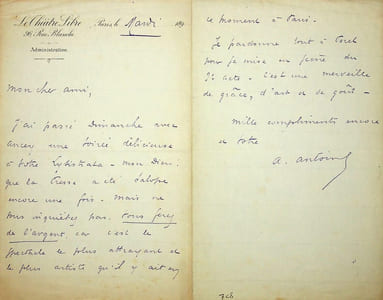 Le Théâtre Libre
96, Rue Blanche
Paris le Mardi 189
Administration
mon cher ami,
J'ai passé Dimanche avec
ancey une soirée délicieuse
à votre Lysistrata - mon Dieu
que la Presse a été salope
encore une fois - mais ne
vous inquiétez pas. vous ferez
de l'argent, car c'est le
spectacle le plus attrayant et
le plus artiste qu'il y ait en
ce moment à Paris.
Je pardonne tout à Porel
pour la mise en scène du
acte - c'est une merveille
de grâce, d'art et de goût -
mille compliments encore
a. antoine